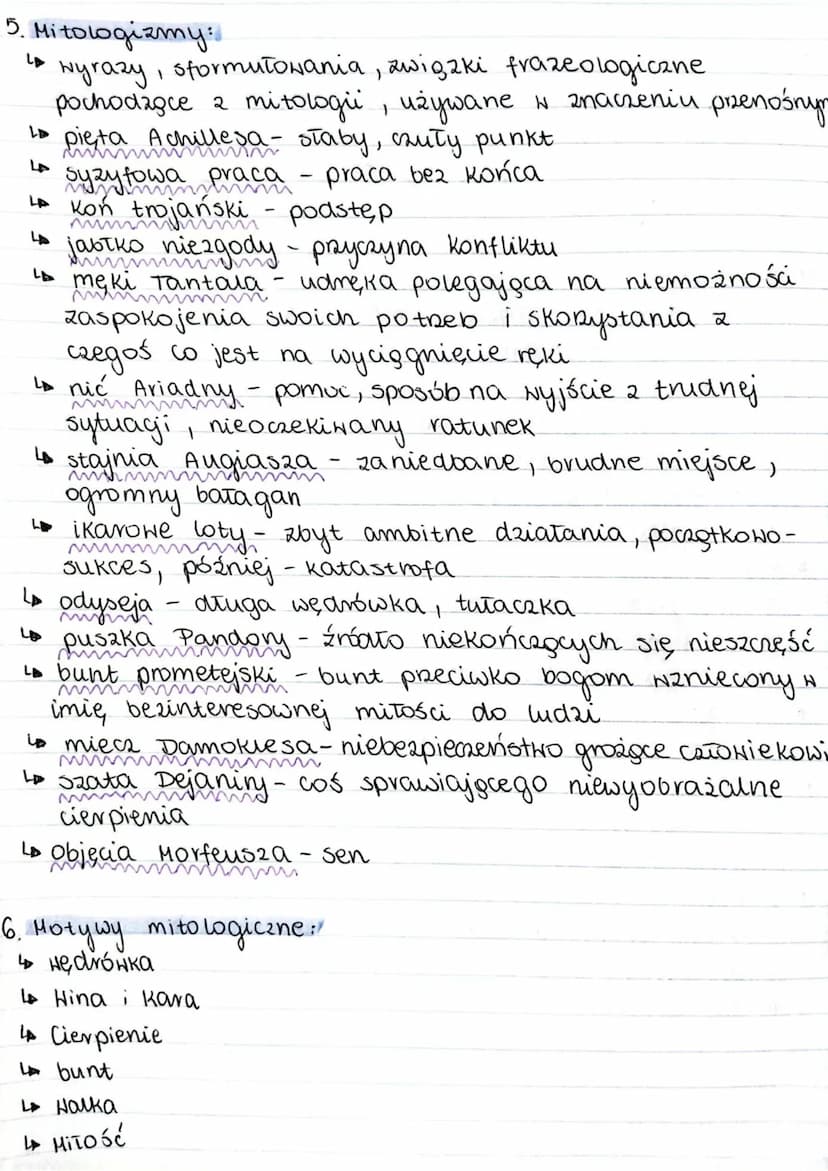 5. Mitologizmy:
↳ wyrazy, sformułowania, związki frazeologiczne
pochodzące z mitologii, używane w znaczeniu przenośnym
↳ pięta Achillesa - słaby, czuły punkt
↳ syzyfowa praca - praca bez końca
↳ koń trojański - podstęp
↳ jabłko niezgody - przyczyna konfliktu
↳ męki Tantala - udręka polegająca na niemożności
zaspokojenia swoich potrzeb i skorzystania z
czegoś co jest na wyciągnięcie ręki
↳ nić Ariadny - pomoc, sposób na wyjście z trudnej
sytuacji, nieoczekiwany ratunek
↳ stajnia Augiasza - zaniedbane, brudne miejsce,
ogromny bałagan
↳ ikarowe loty - zbyt ambitne działania, początkowo-
sukces, później - katastrofa
↳ odyseja - długa wędrówka, tułaczka
↳ puszka Pandory - źródło niekończących się nieszczęść
↳ bunt prometejski - bunt przeciwko bogom wzniecony w
imię bezinteresownej miłości do ludzi
↳ miecz Damoklesa - niebezpieczeństwo grożące człowiekowi
↳ szata Dejaniry - coś sprawiającego niewyobrażalne
cierpienia
↳ Objęcia Morfeusza - sen
6. Motywy mitologiczne:
↳ wędrówka
↳ Wina i Kara
↳ Cierpienie
↳ bunt
↳ Walka
↳ Miłość